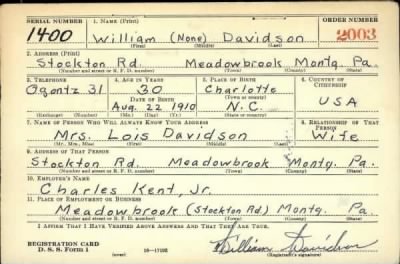 SERIAL NUMBER 1. NAME (Print) ORDER NUMBER
1400 William (None) Davidson 2003
(First) (Middle) (Last)
2. ADDRESS (Print)
Stockton Rd. Meadowbrook Montg. Pa.
(Number and street or R. F. D. number) (Town) (County) (State)
3. TELEPHONE 4. AGE IN YEARS 5. PLACE OF BIRTH 6. COUNTRY OF CITIZENSHIP
Ogontz 31 30 Charlotte
DATE OF BIRTH (Town or county)
Aug. 22 1910 N.C. USA
(Exchange) (Number) (Mo.) (Day) (Yr.) (State or country)
7. NAME OF PERSON WHO WILL ALWAYS KNOW YOUR ADDRESS 8. RELATIONSHIP OF THAT PERSON
Mrs. Lois Davidson Wife
(Mr., Mrs., Miss) (First) (Middle) (Last)
9. ADDRESS OF THAT PERSON
Stockton Rd. Meadowbrook Montg. Pa.
(Number and street or R. F. D. number) (Town) (County) (State)
10. EMPLOYER'S NAME
Charles Kent, Jr.
11. PLACE OF EMPLOYMENT OR BUSINESS
Meadowbrook (Stockton Rd.) Montg. Pa.
(Number and street or R. F. D. number) (Town) (County) (State)
I AFFIRM THAT I HAVE VERIFIED ABOVE ANSWERS AND THAT THEY ARE TRUE.
REGISTRATION CARD
D. S. S. Form 1 16—17105 William Davidson
(Registrant's signature)